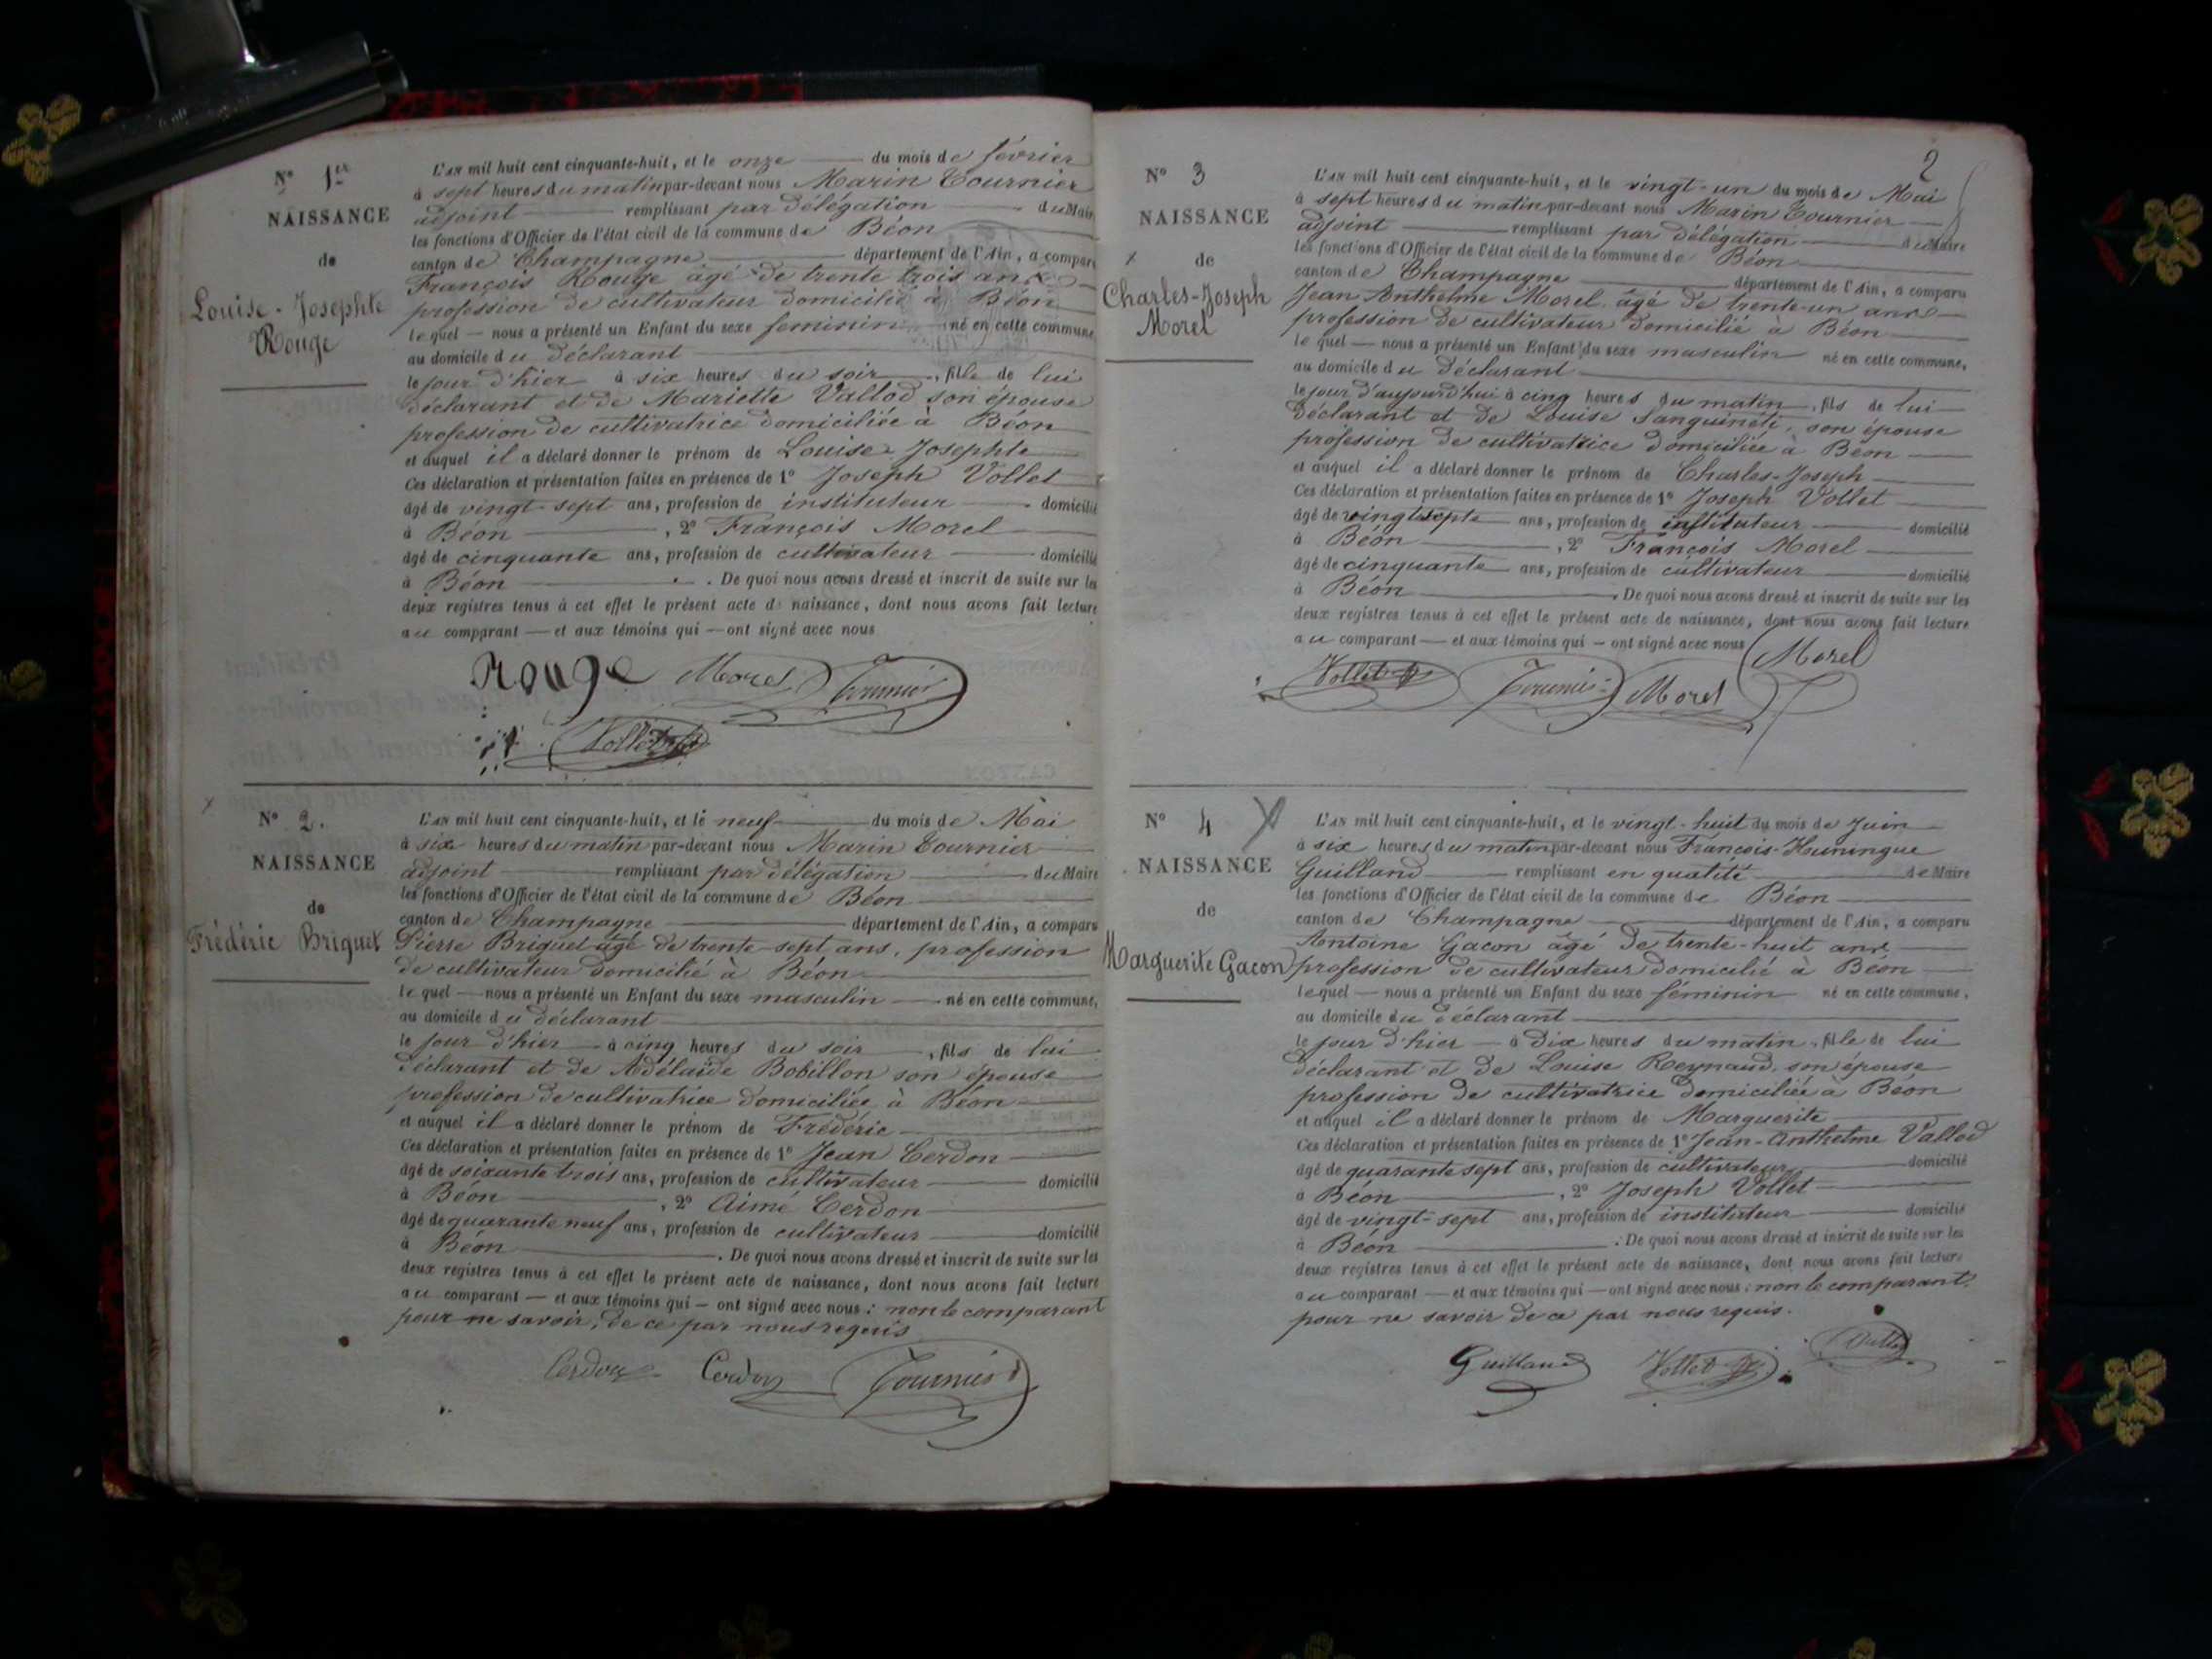 N° 1er
NAISSANCE
de
Louise-Josephte
Rouge
L'AN mil huit cent cinquante-huit, et le onze du mois de février
à sept heures du matin par-devant nous Marin Tournier
adjoint remplissant par délégation du Maire
les fonctions d'Officier de l'état civil de la commune de Béon
canton de Champagne département de l'Ain, a comparu
François Rouge âgé de trente trois ans
profession de cultivateur domicilié à Béon
lequel nous a présenté un Enfant du sexe feminin né en cette commune
au domicile du déclarant
le jour d'hier à six heures du soir, fille de lui
déclarant et de Mariette Vallod son épouse
profession de cultivatrice domiciliée à Béon
et auquel il a déclaré donner le prénom de Louise Josephte
Ces déclaration et présentation faites en présence de 1° Joseph Vollet
âgé de vingt-sept ans, profession de instituteur domicilié
à Béon, 2° François Morel
âgé de cinquante ans, profession de cultivateur domicilié
à Béon. De quoi nous avons dressé et inscrit de suite sur les
deux registres tenus à cet effet le présent acte de naissance, dont nous avons fait lecture
au comparant et aux témoins qui ont signé avec nous
Rouge Morel Tournier
Vollet
N° 2.
NAISSANCE
de
Frédéric Briquet
L'AN mil huit cent cinquante-huit, et le neuf du mois de Mai
à six heures du matin par-devant nous Marin Tournier
adjoint remplissant par délégation du Maire
les fonctions d'Officier de l'état civil de la commune de Béon
canton de Champagne département de l'Ain, a comparu
Pierre Briquet âgé de trente-sept ans, profession
de cultivateur domicilié à Béon
lequel nous a présenté un Enfant du sexe masculin né en cette commune,
au domicile du déclarant
le jour d'hier à cinq heures du soir, fils de lui
déclarant et de Adélaïde Bobillon son épouse
profession de cultivatrice domiciliée à Béon
et auquel il a déclaré donner le prénom de Frédéric
Ces déclaration et présentation faites en présence de 1° Jean Cerdon
âgé de soixante trois ans, profession de cultivateur domicilié
à Béon, 2° Aimé Cerdon
âgé de quarante neuf ans, profession de cultivateur domicilié
à Béon. De quoi nous avons dressé et inscrit de suite sur les
deux registres tenus à cet effet le présent acte de naissance, dont nous avons fait lecture
au comparant et aux témoins qui ont signé avec nous : non le comparant
pour ne savoir, de ce par nous requis
Cerdon Cerdon Tournier
2
N° 3
NAISSANCE
de
Charles-Joseph
Morel
L'AN mil huit cent cinquante-huit, et le vingt-un du mois de Mai
à sept heures du matin par-devant nous Marin Tournier
adjoint remplissant par délégation du Maire
les fonctions d'Officier de l'état civil de la commune de Béon
canton de Champagne département de l'Ain, a comparu
Jean Anthelme Morel âgé de trente-un ans
profession de cultivateur domicilié à Béon
lequel nous a présenté un Enfant du sexe masculin né en cette commune,
au domicile du déclarant
le jour d'aujourd'hui à cinq heures du matin, fils de lui
déclarant et de Louise Sanguineti, son épouse
profession de cultivatrice domiciliée à Béon
et auquel il a déclaré donner le prénom de Charles-Joseph
Ces déclaration et présentation faites en présence de 1° Joseph Vollet
âgé de vingt sept ans, profession de instituteur domicilié
à Béon, 2° François Morel
âgé de cinquante ans, profession de cultivateur domicilié
à Béon. De quoi nous avons dressé et inscrit de suite sur les
deux registres tenus à cet effet le présent acte de naissance, dont nous avons fait lecture
au comparant et aux témoins qui ont signé avec nous Morel
Vollet Tournier Morel
N° 4
NAISSANCE
de
Marguerite Gacon
L'AN mil huit cent cinquante-huit, et le vingt-huit du mois de Juin
à six heures du matin par-devant nous François-Huningue
Guilland remplissant en qualité de Maire
les fonctions d'Officier de l'état civil de la commune de Béon
canton de Champagne département de l'Ain, a comparu
Antoine Gacon âgé de trente-huit ans
profession de cultivateur domicilié à Béon
lequel nous a présenté un Enfant du sexe féminin né en cette commune,
au domicile du déclarant
le jour d'hier à dix heures du matin, fille de lui
déclarant et de Louise Reynaud, son épouse
profession de cultivatrice domiciliée à Béon
et auquel il a déclaré donner le prénom de Marguerite
Ces déclaration et présentation faites en présence de 1° Jean-Anthelme Vallod
âgé de quarante sept ans, profession de cultivateur domicilié
à Béon, 2° Joseph Vollet
âgé de vingt-sept ans, profession de instituteur domicilié
à Béon. De quoi nous avons dressé et inscrit de suite sur les
deux registres tenus à cet effet le présent acte de naissance, dont nous avons fait lecture
au comparant et aux témoins qui ont signé avec nous : non le comparant
pour ne savoir de ce par nous requis.
Guilland Vollet